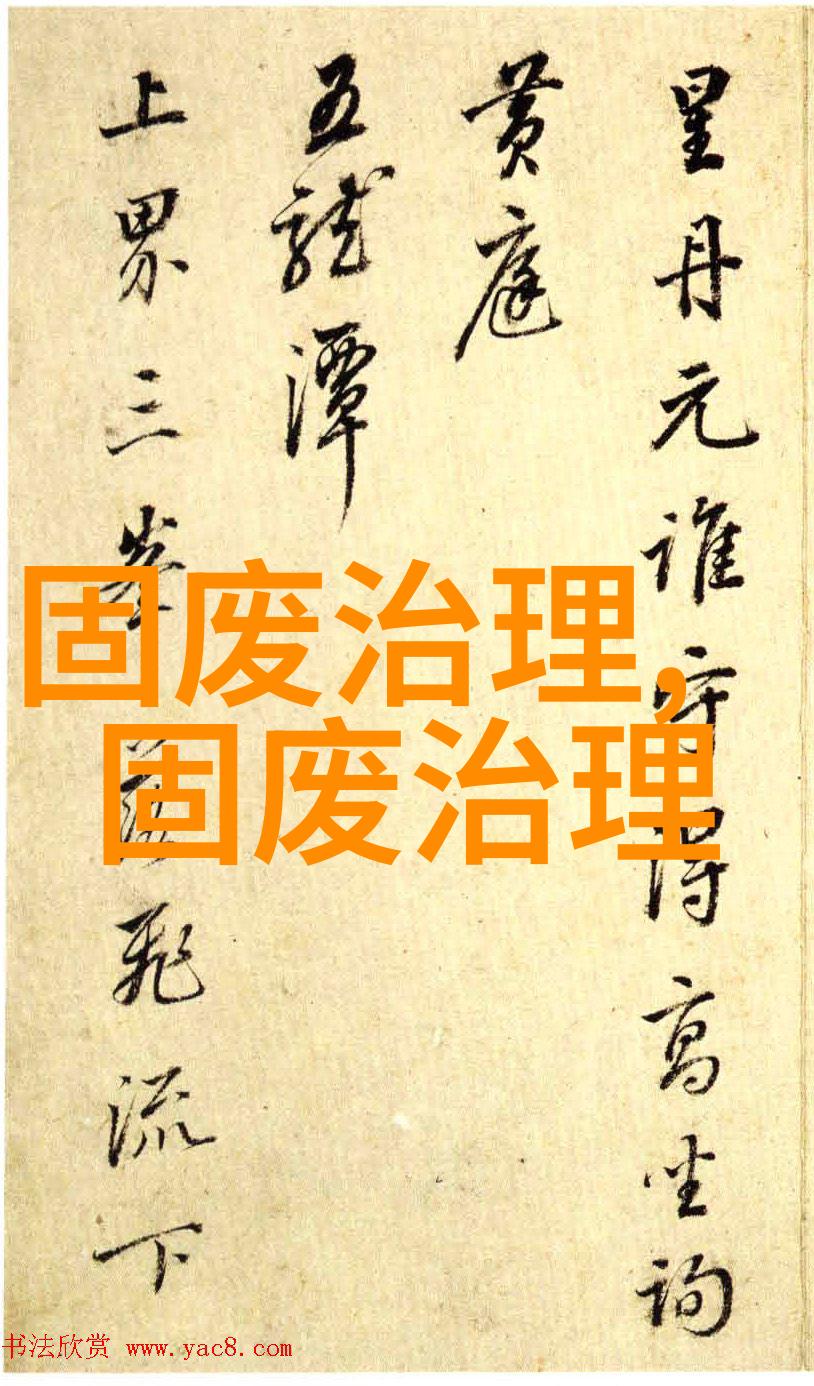 星丹元誰守得高坐詢
黄庭
五龍潭
上界三峯飛流下
固废治理,
固废治理
书法欣赏 www.yac8.com